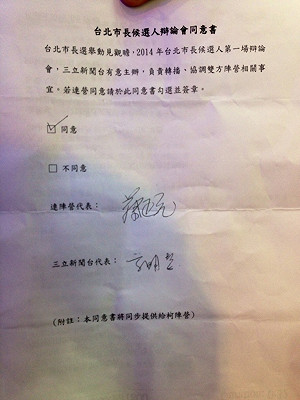 台北市長候選人辯論會同意書
台北市長選舉動見觀瞻,2014年台北市長候選人第一場辯論
會,三立新聞台有意主辦,負責轉播、協調雙方陣營相關事
宜。若連營同意請於此同意書勾選並簽章。
同意
不同意
連陣營代表:
三立新聞台代表:
(附註:本同意書將同步提供給柯陣營)